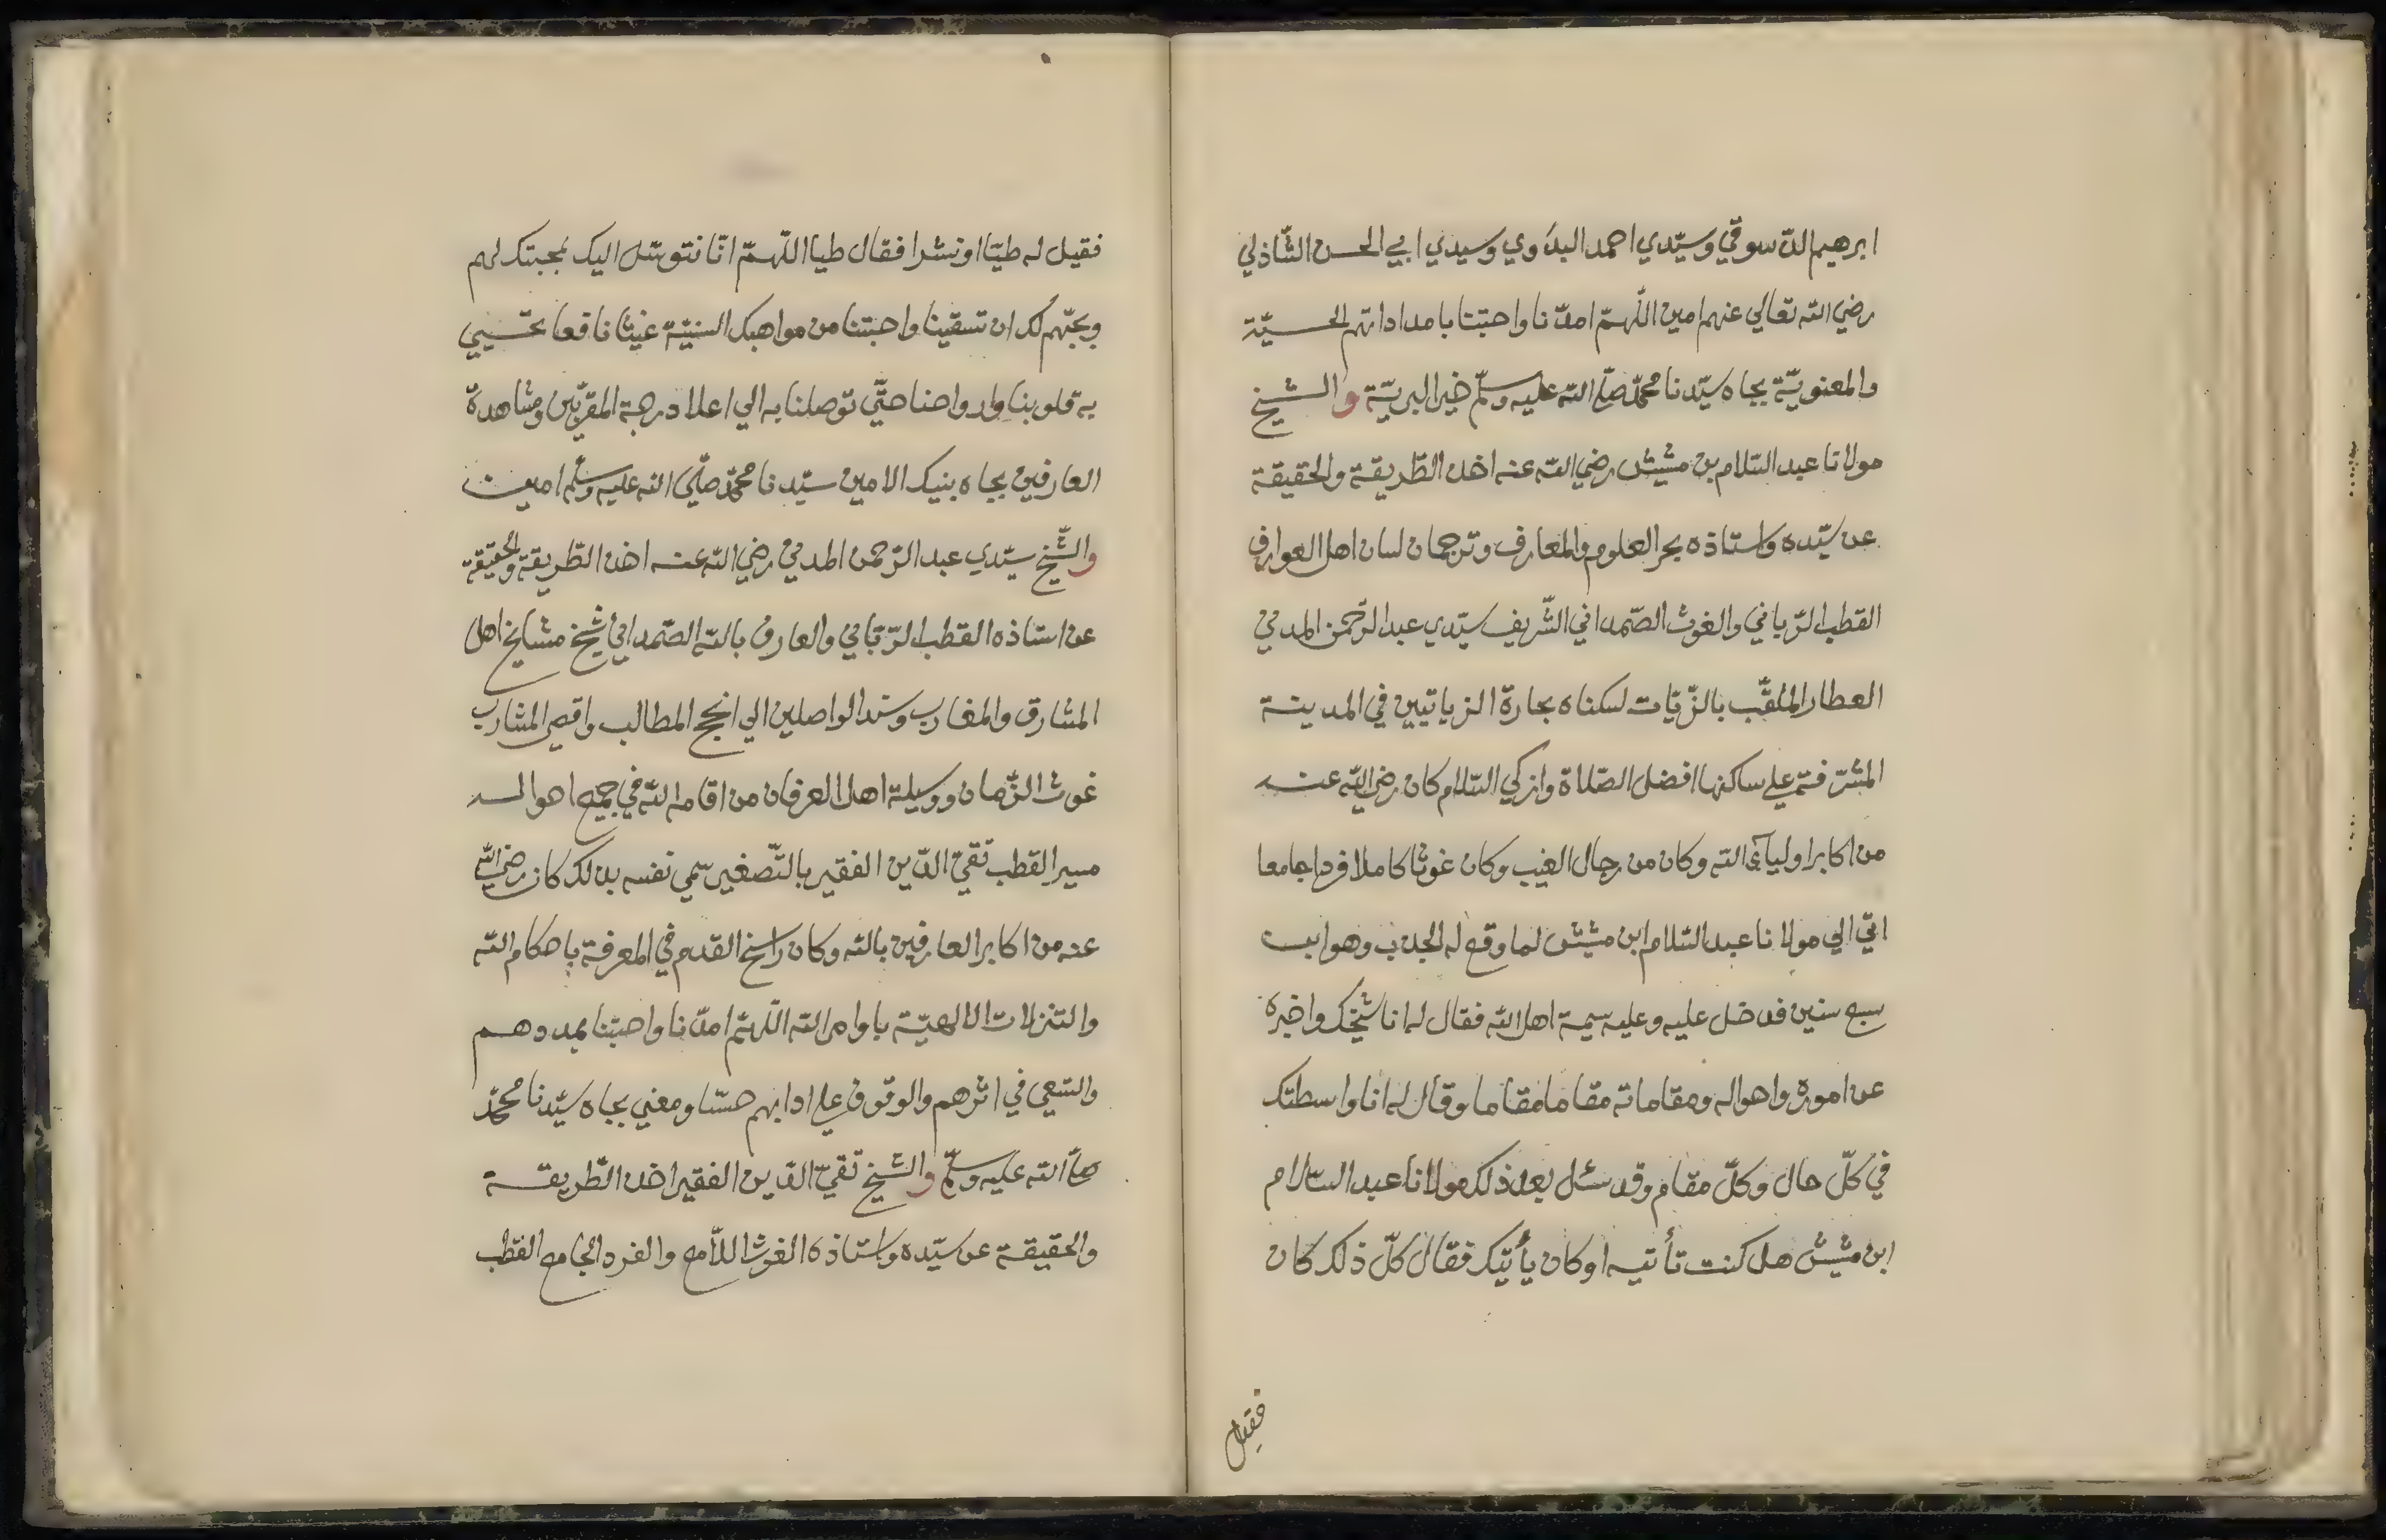 ابرهيم الدّسوقي وسيّدي احمد البدوي وسيدي ابي الحسن الشّاذلي
رضي الله تعالي عنهم امين اللّهمّ امدّنا واحبّتنا بامداداتهم الحسيّة
والمعنويّة بجاه سيّدنا محمّد صلّي الله عليه وسلّم خير البريّة والشيخ
مولانا عبد السّلام بن مشيش رضي الله عنه اخذ الطّريقة والحقيقة
عن سيّده واستاذه بحر العلوم والمعارف وترجمان لسان اهل العوارف
القطب الرّباني والغوث الصّمداني الشّريف سيّدي عبد الرّحمن المدني
العطار الملقّب بالزّيّات لسكناه بحارة الزياتيين في المدينة
المشرّفة علي ساكنها افضل الصّلاة وازكي السّلام كان رضي الله عنه
من اكابر اوليآء الله وكان من رجال الغيب وكان غوثا كاملا فردا جامعا
اتي الي مولانا عبد السّلام ابن مشيش لما وقع له الجذب وهو ابن
سبع سنين فدخل عليه وعليه سيمة اهل الله فقال له انا شيخك واخبره
عن اموره واحواله ومقاماته مقاما مقاما وقال له انا واسطتك
في كلّ حال وكلّ مقام وقد سئل بعد ذلك مولانا عبد السّلام
ابن مشيش هل كنت تأتيه او كان يأتيك فقال كلّ ذلك كان
فقيل
فقيل له طيّا او نشرا فقال طيا اللّهمّ انّا نتوسّل اليك بمحبتك لهم
وبحبّهم لك ان تسقينا واحبتنا من مواهبك السنيّة غيثا نافعا تحيي
به قلوبنا وارواحنا حتّي توصلنا به الي اعلا درجة المقرّبين ومشاهدة
العارفين بجاه نبيك الامين سيّدنا محمّد صلّي الله عليه وسلّم امين
والشّيخ سيّدي عبد الرّحمن المدني رضي الله عنه اخذ الطّريقة والحقيقة
عن استاذه القطب الرّبّاني والعارف بالله الصّمداني شيخ مشايخ اهل
المشارق والمغارب وسند الواصلين الي انجح المطالب واقصي المشارب
غوث الزّمان ووسيلة اهل العرفان من اقامه الله في جميع احواله
مسير القطب تقيّ الدّين الفقير بالتّصغير سمي نفسه بذلك كان رضي الله
عنه من اكابر العارفين بالله وكان راسخ القدم في المعرفة باحكام الله
والتنزلات الالهيّة باوامر الله اللّهمّ امدّنا واحبّنا بمددهم
والسّعي في اثرهم والوقوف علي ادابهم حسّا ومعني بجاه سيّدنا محمّد
صلّي الله عليه وسلّم والشيخ تقيّ الدّين الفقير اخذ الطّريقة
والحقيقة عن سيّده واستاذه الغوث اللاّمع والفرد الجامع القطب